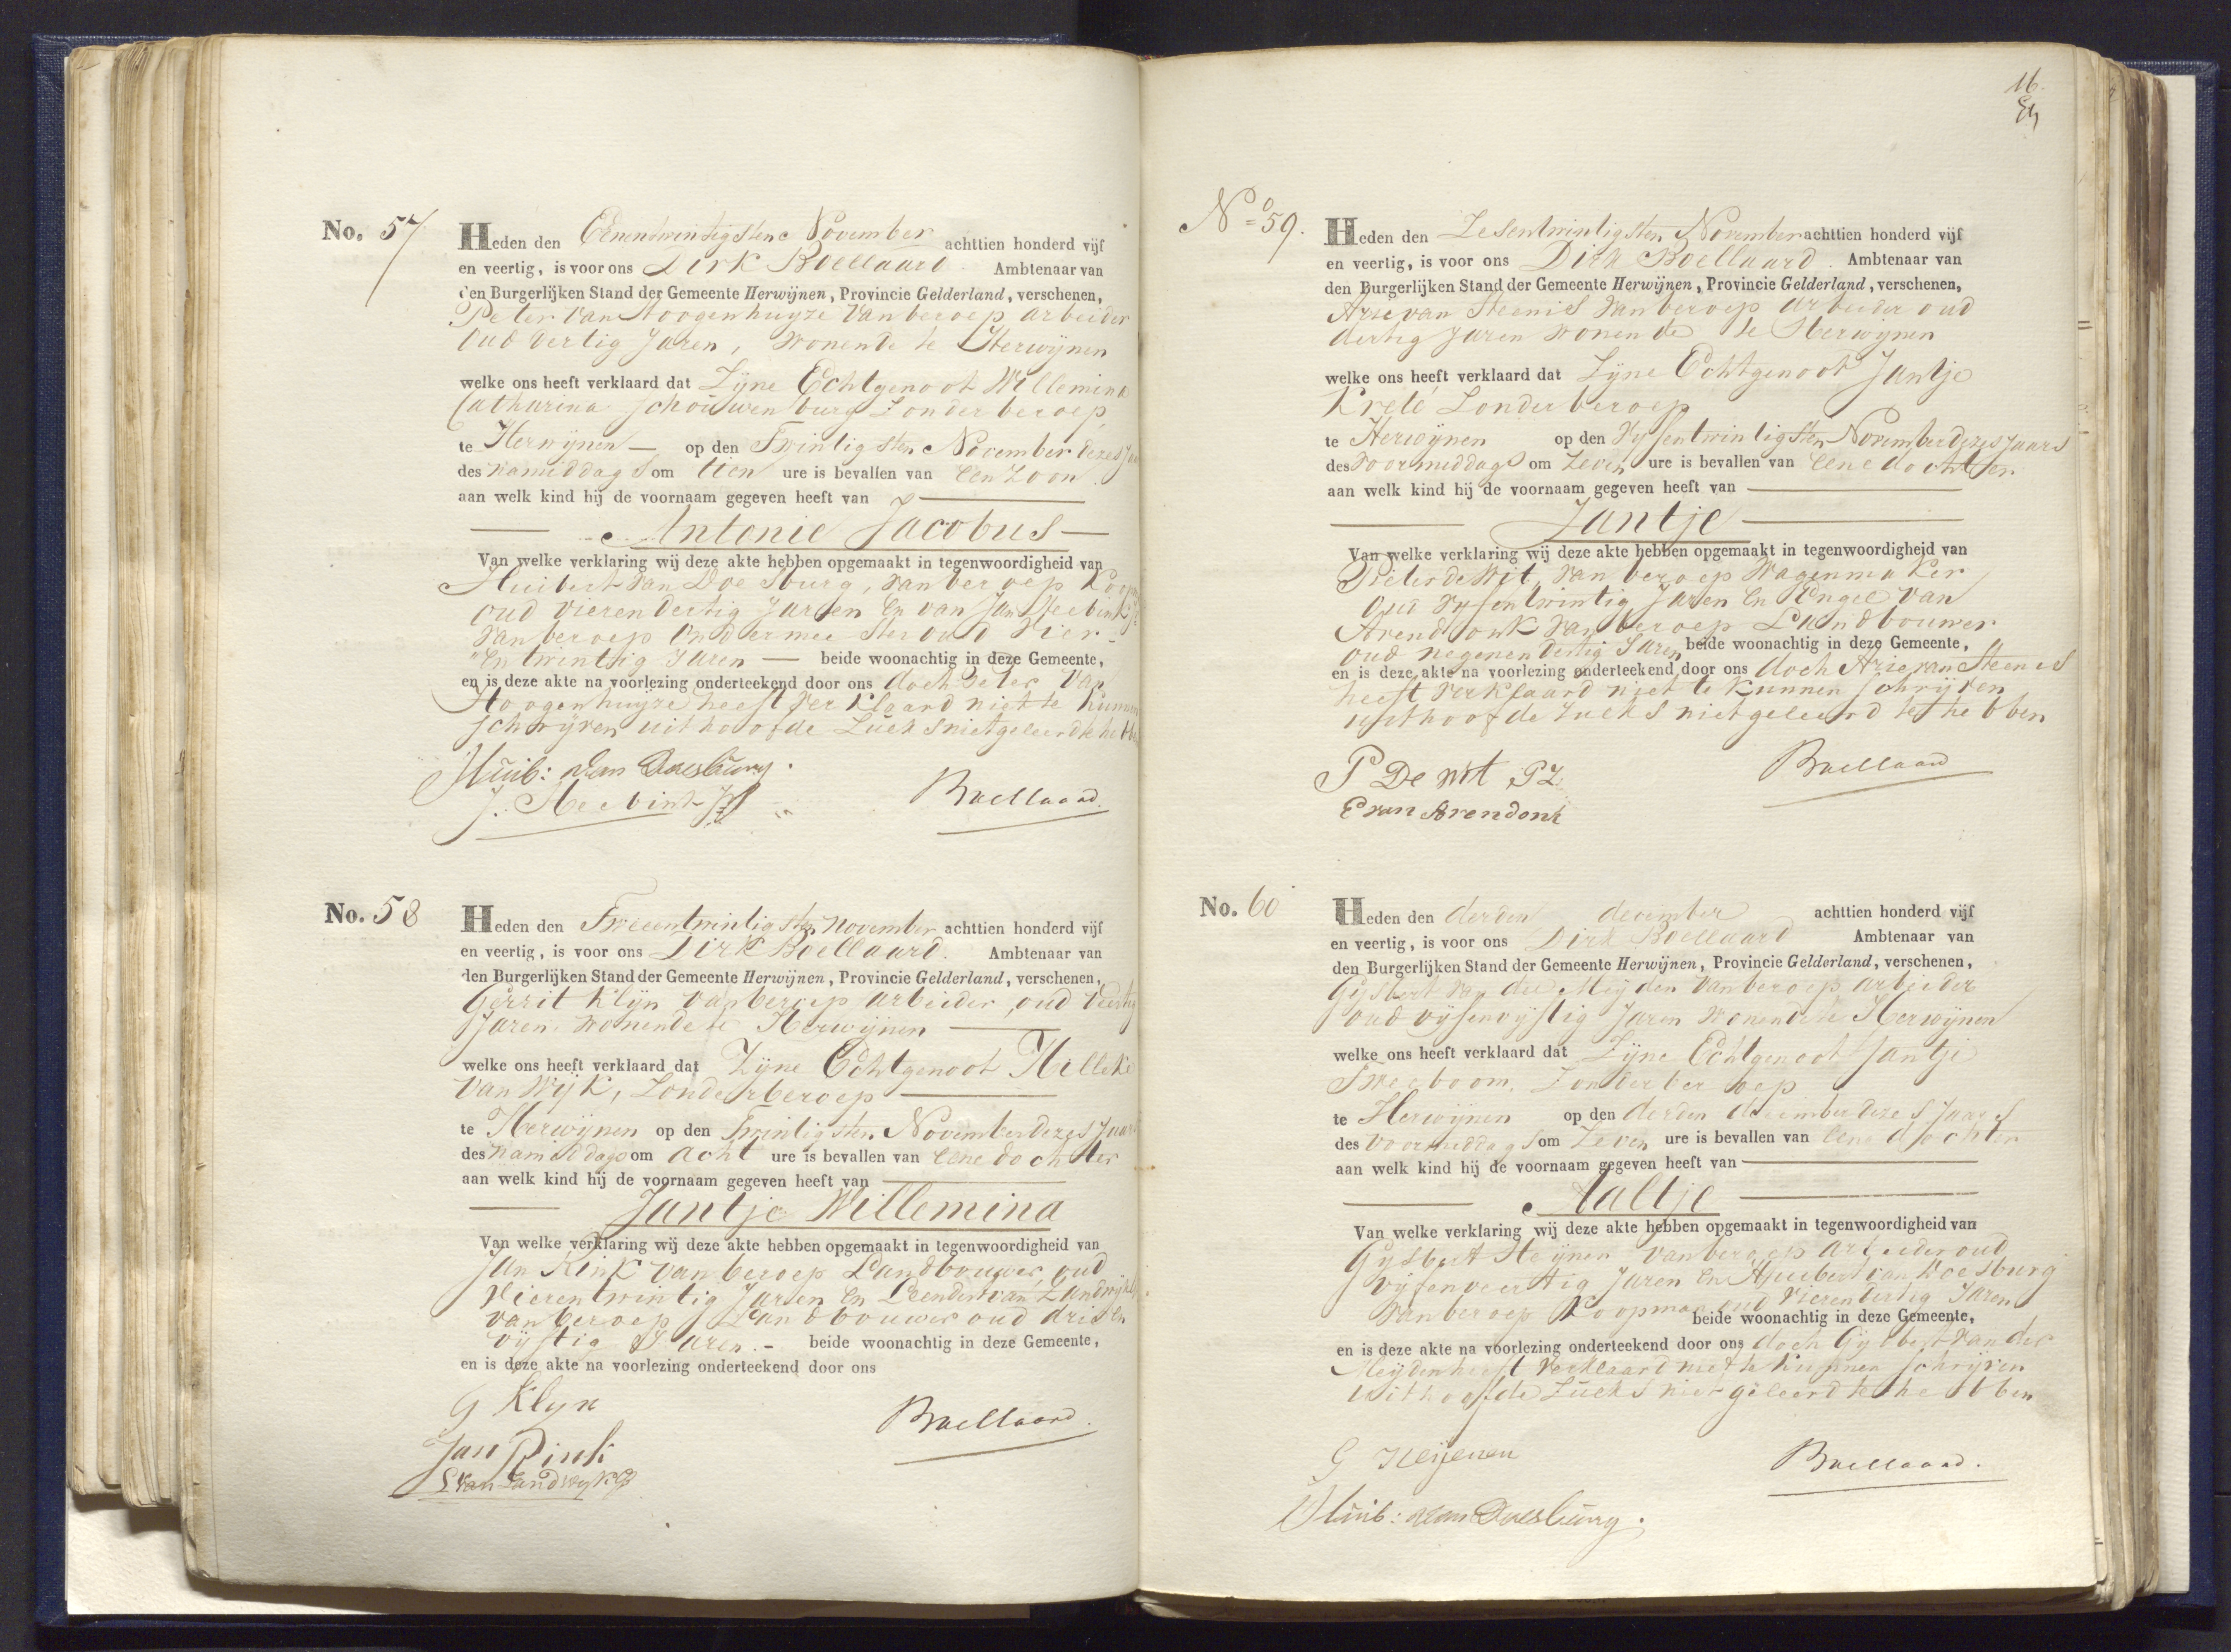 No. 57
Heden den Eenentwintigsten November achttien honderd vijf
en veertig, is voor ons Dirk Boellaard Ambtenaar van
den Burgerlijken Stand der Gemeente Herwijnen, Provincie Gelderland, verschenen,
Peter van Hoogenhuyze van beroep arbeider
Oud veertig Jaren, Wonende te Herwijnen
welke ons heeft verklaard dat Zijne Echtgenoot Willemina
Catharina Schouwenburg Zonder beroep
te Herwijnen op den Twintigsten November dezes
des namiddags om tien ure is bevallen van een zoon
aan welk kind hij de voornaam gegeven heeft van
Antonie Jacobus
Van welke verklaring wij deze akte hebben opgemaakt in tegenwoordigheid van
Huibert van Doesburg, van beroep
oud vierendertig Jaren en van Jan
van beroep Ondermeester oud vier
en twintig Jaren beide woonachtig in deze Gemeente,
en is deze akte na voorlezing onderteekend door ons doch Peter van
Hoogenhuyze heeft verklaard niet te kunnen
schrijven uit hoofde zulks niet geleerd te hebben
Huib: van Doesburg.
Boellaard.
No. 58
Heden den Tweeentwintigsten november achttien honderd vijf
en veertig, is voor ons Dirk Boellaard. Ambtenaar van
den Burgerlijken Stand der Gemeente Herwijnen, Provincie Gelderland, verschenen,
Gerrit Klijn van beroep arbeider, oud veertig
Jaren wonende te Herwijnen
welke ons heeft verklaard dat Zijne Echtgenoot Hilleke
van Wijk, Zonder beroep
te Herwijnen op den Twintigsten November dezes Jaars
des namiddags om acht ure is bevallen van eene dochter
aan welk kind hij de voornaam gegeven heeft van
Jantje Willemina
Van welke verklaring wij deze akte hebben opgemaakt in tegenwoordigheid van
Jan Rink van beroep Landbouwer, oud
Vierentwintig Jaren en Leendert van Zandwijk
van beroep Landbouwer oud drie en
vijftig Jaren. - beide woonachtig in deze Gemeente,
en is deze akte na voorlezing onderteekend door ons
G Klyn
Boellaard.
Jan Rink
L van Zandwyk
16.
No 59.
Heden den Zesentwintigsten November achttien honderd vijf
en veertig, is voor ons Dirk Boellaard. Ambtenaar van
den Burgerlijken Stand der Gemeente Herwijnen, Provincie Gelderland, verschenen,
Arie van Steenis van beroep arbeider oud
dertig Jaren wonende te Herwijnen
welke ons heeft verklaard dat Zijne Echtgenoot Jantje
Kreté Zonder beroep
te Herwijnen op den Vijfentwintigsten November dezes Jaars
des voormiddags om Zeven ure is bevallen van eene dochter
aan welk kind hij de voornaam gegeven heeft van
Jantje
Van welke verklaring wij deze akte hebben opgemaakt in tegenwoordigheid van
Pieter de Wit van beroep Wagenmaker
Oud vijfentwintig Jaren en Engel van
Arendonk van beroep Landbouwer
oud negenendertig Jaren beide woonachtig in deze Gemeente,
en is deze akte na voorlezing onderteekend door ons doch Arie van Steenis
heeft verklaard niet te kunnen schrijven
uit hoofde zulks niet geleerd te hebben
P De wit PZ
Boellaard
E van Arendonk
No. 60
Heden den derden december achttien honderd vijf
en veertig, is voor ons Dirk Boellaard Ambtenaar van
den Burgerlijken Stand der Gemeente Herwijnen, Provincie Gelderland, verschenen,
Gijsbert van der Meijden van beroep arbeider
oud vijfenvijftig Jaren Wonende te Herwijnen
welke ons heeft verklaard dat Zijne Echtgenoot Jantje
Sweeboom, Zonder beroep
te Herwijnen op den derden december dezes Jaars
des voormiddags om Zeven ure is bevallen van eene dochter
aan welk kind hij de voornaam gegeven heeft van
Aaltje
Van welke verklaring wij deze akte hebben opgemaakt in tegenwoordigheid van
Gijsbert Heijnen van beroep arbeider oud
vijfenveertig Jaren en Huibert van Doesburg
van beroep Koopman oud vierendertig Jaren
beide woonachtig in deze Gemeente,
en is deze akte na voorlezing onderteekend door ons doch Gijsbert van der
Meijden heeft verklaard niet te kunnen schrijven
uit hoofde zulks niet geleerd te hebben
G Heijenen
Boellaard.
Huib: van Doesburg.